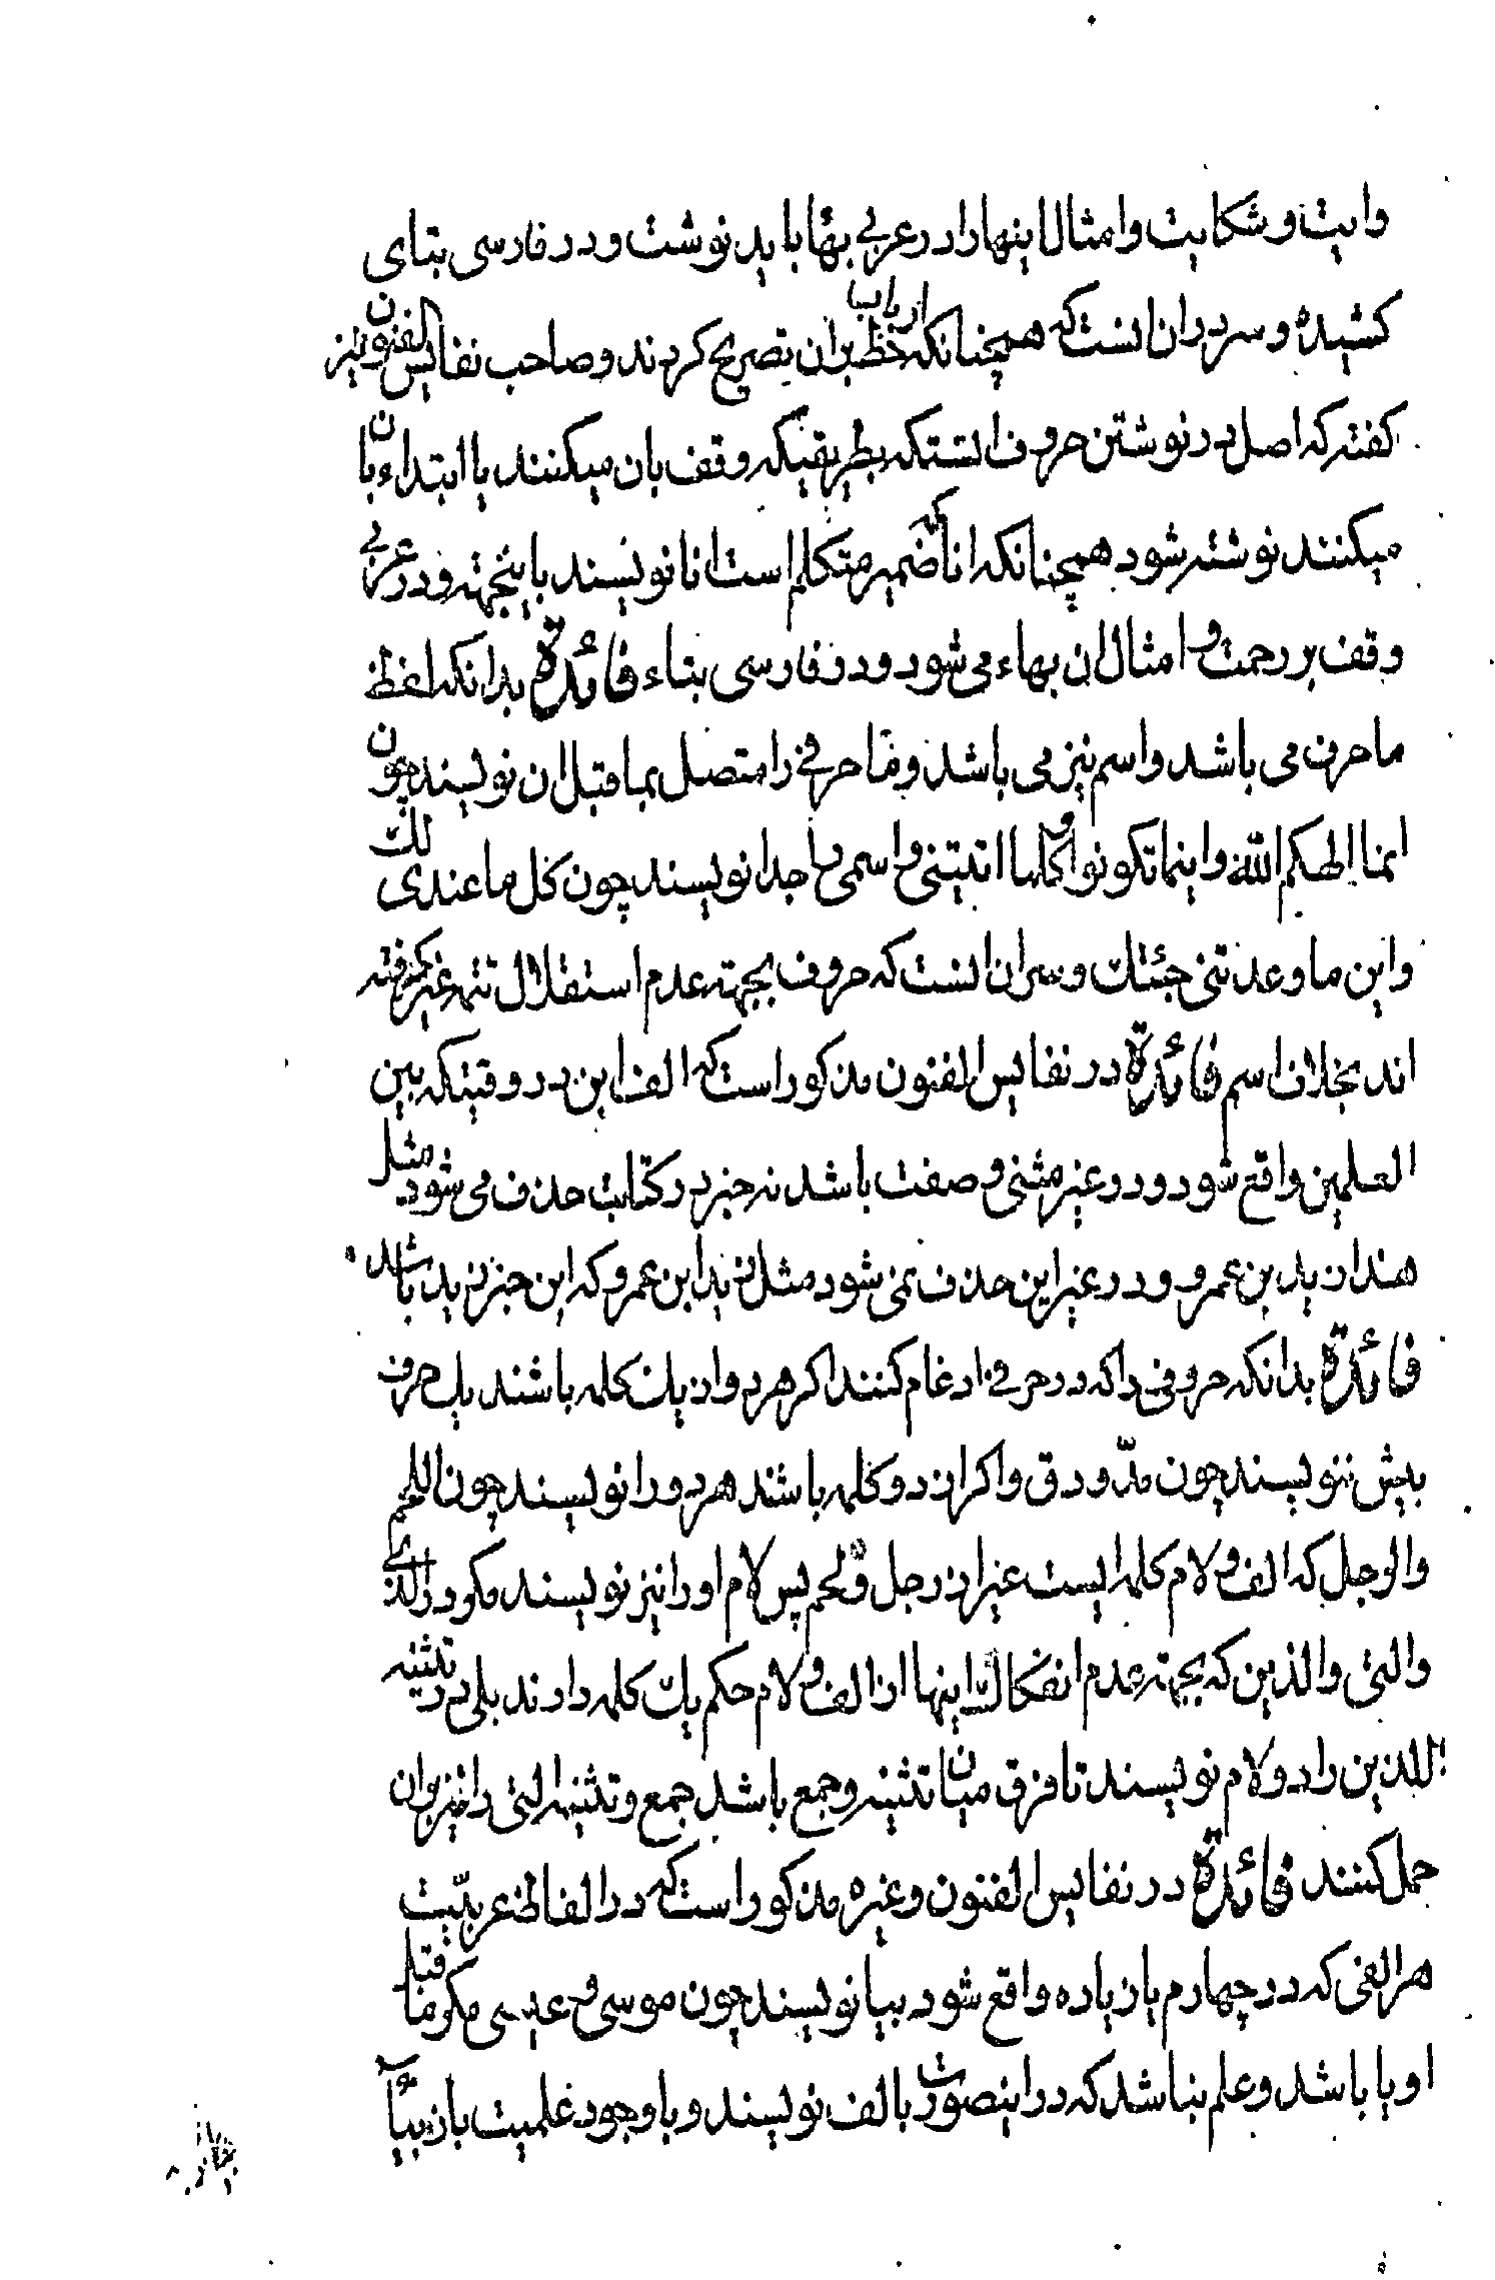 وایت و شکایت و امثال اینها را در عربی بها باید نوشت و در فارسی بتای
کشیده و سر در ان انست که همچنانکه ارباب خط بران تصریح کرده‌ند و صاحب نفایس الفنون نیز
کفته که اصل در نوشتن حروف انستکه بطریقیکه وقف بان میکنند یا ابتداء بان
میکنند نوشته شود همچنانکه انا که ضمیر متکلم است انا نویسند باینجهته و در عربی
وقف بر رحمت و امثال ان بهاء می شود و در فارسی بتاء فائدة بدانکه لفظ
ما حرف می باشد و اسم نیز می باشد و ما حرفی را متصل بما قبل ان نویسند چون
انما الهکم الله و اینما تکونوا و کلما اتیتنی و اسمی را جدا نویسند چون کل ما عندی لک
و این ما وعدتنی جئتک و سر ان انست که حروف بجهته عدم استقلال تتمه غیر کرفته
اند بخلاف اسم فائدة در نفایس الفنون مذکور است که الف ابن در وقتیکه بین
العلمین واقع شود و در غیر مثنی و صفت باشد نه خبر در کتابت حذف می شود مثل
هذا زید بن عمرو و در غیر این حذف نمی شود مثل زید ابن عمرو که ابن خبر زید باشد
فائدة بدانکه حروفی را که در حرفی ادغام کنند اکر هر دو از یک کلمه باشند یک حرف
بیش ننویسند چون مدّ و دق و اکر از دو کلمه باشند هر دو را نویسند چون اللحم
و الرجل که الف و لام کلمه ایست غیر از رجل و لحم پس لام او را نیز نویسند مکر در الذی
و التی و الذین که بجهته عدم انفکاک اینها از الف و لام حکم یک کلمه دارند بلی در تثنیه
اللذین را دو لام نویسند تا فرق میان تثنیه و جمع باشد جمع و تثنیه التی را نیز بران
حمل کنند فائدة در نفایس الفنون و غیره مذکور است که در الفاظ عربیّت
هر الفی که در چهارم یا زیاده واقع شود بیا نویسند چون موسی و عیسی مکر ما قبل
او یا باشد و علم نباشد که در اینصورت بالف نویسند و با وجود علمیت باز بیا